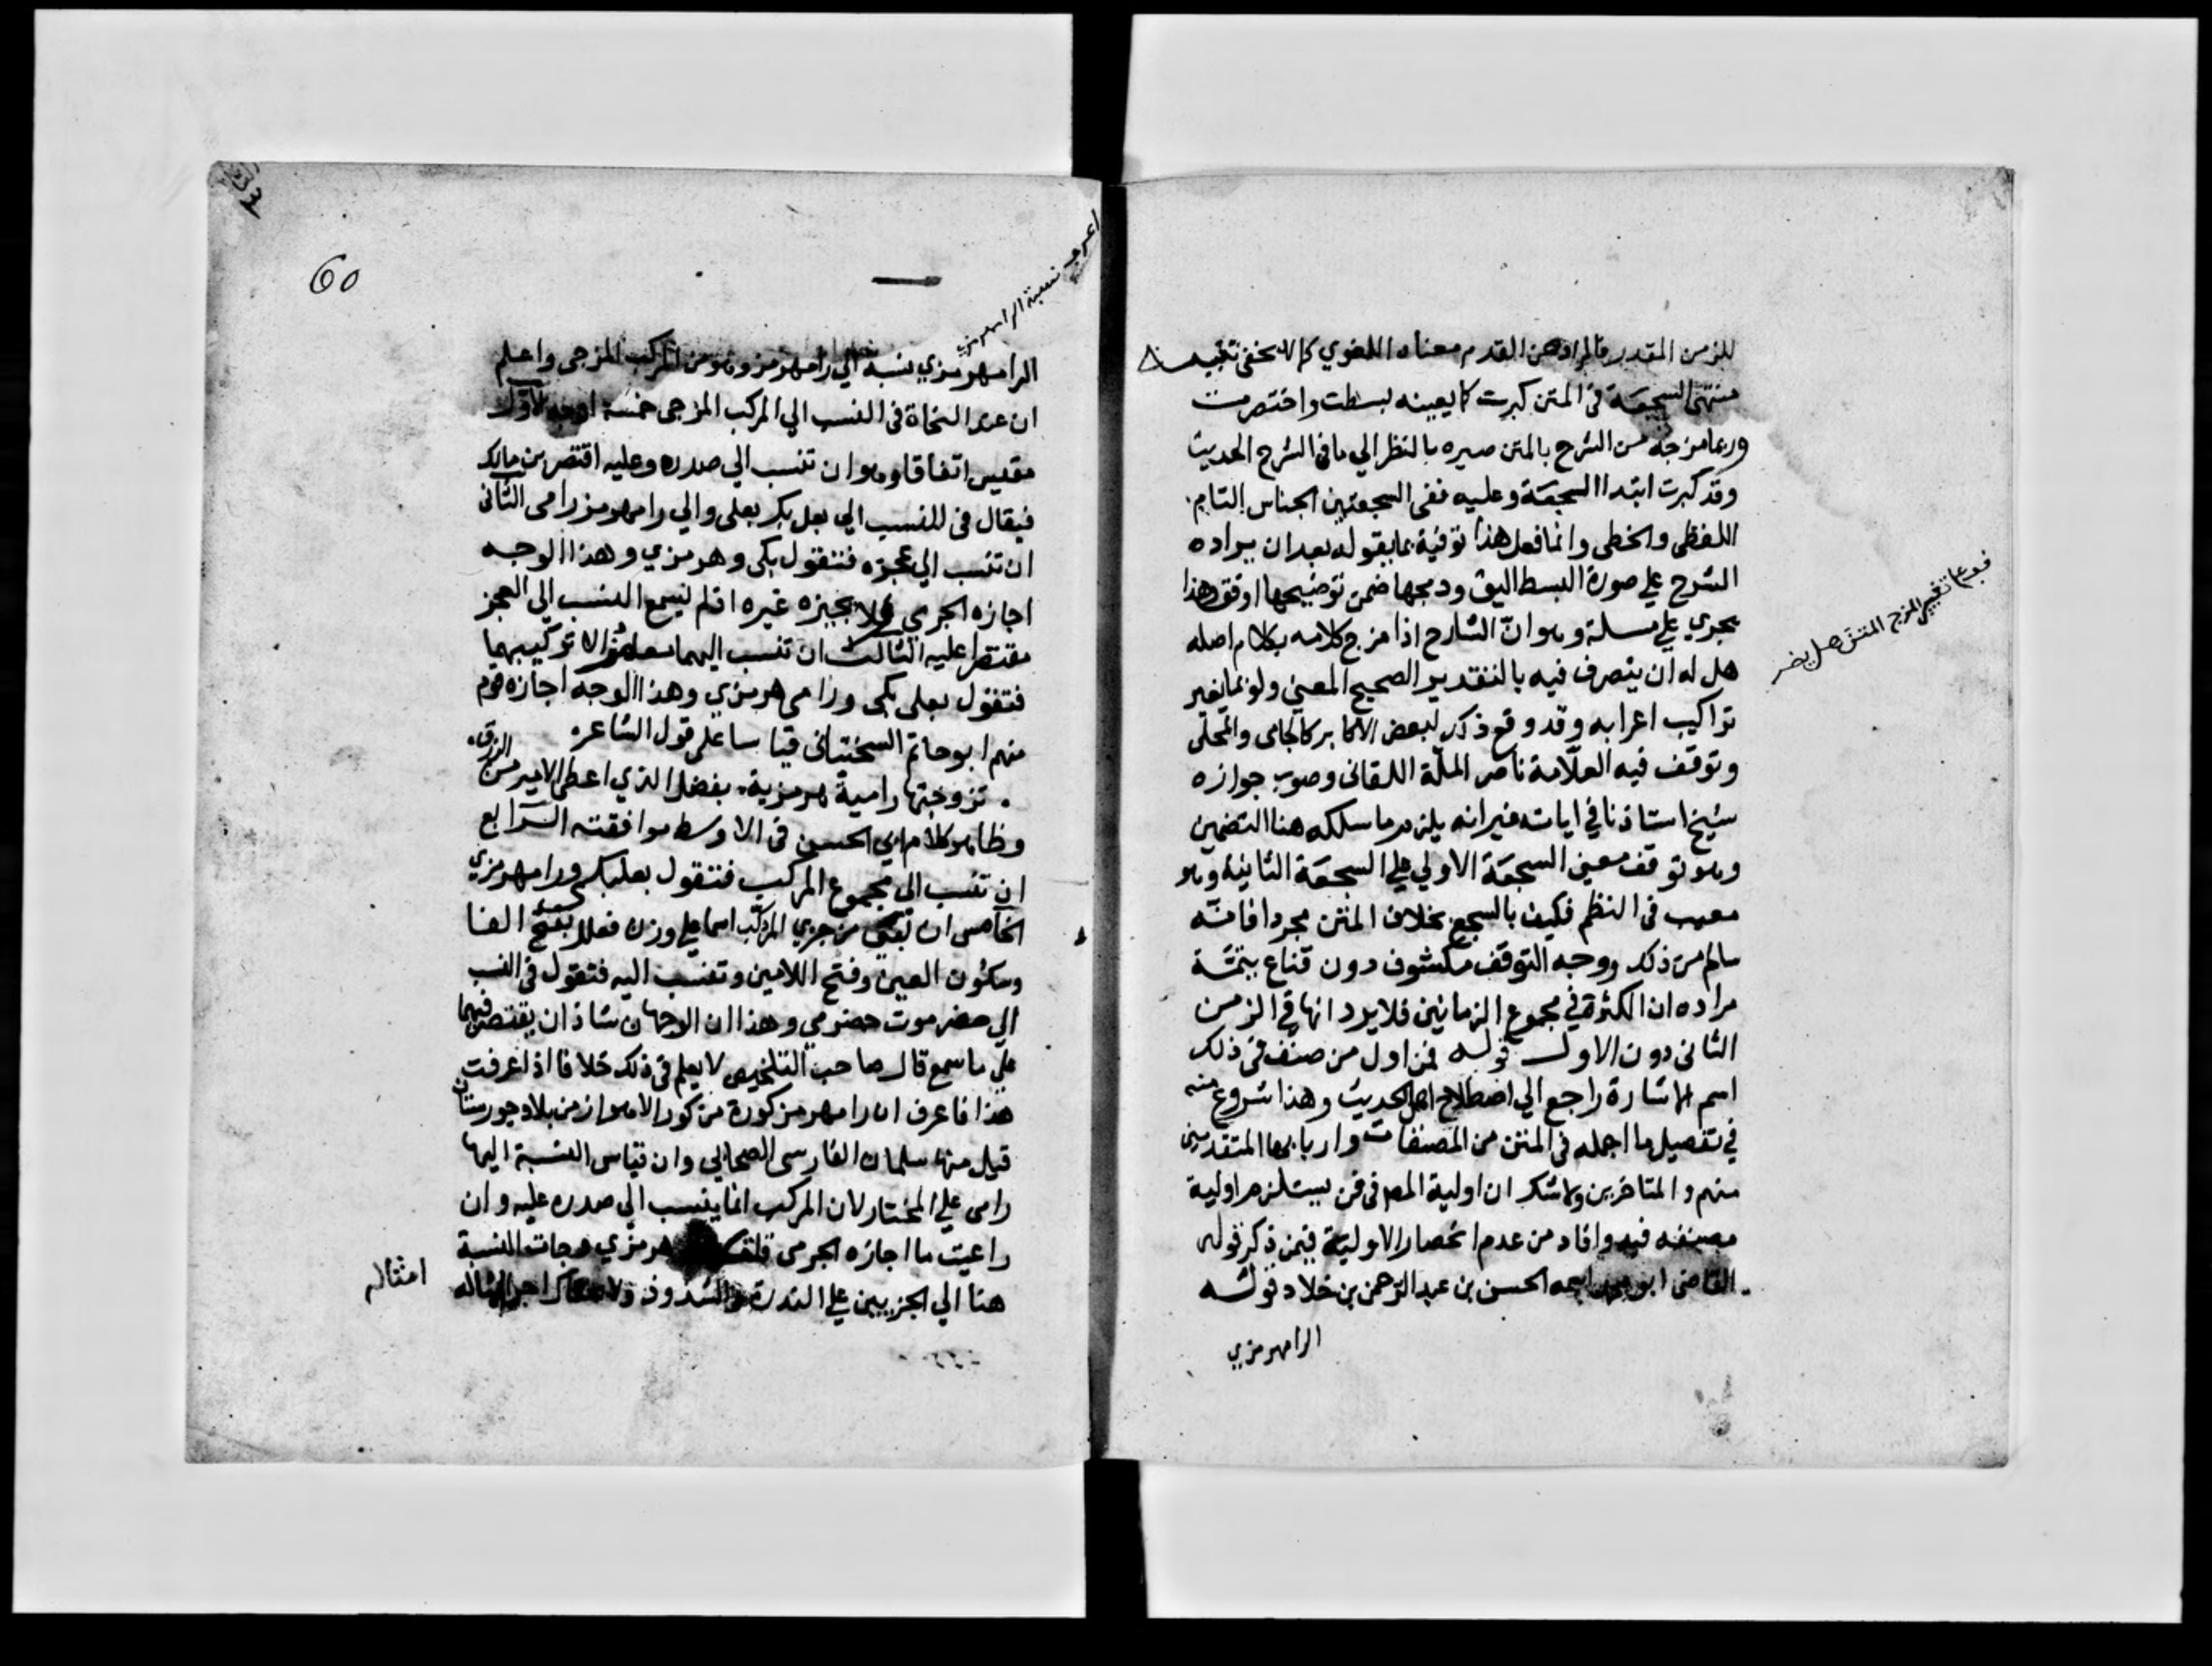 للزمن المقدر فالمراد من القدم معناه اللغوي كما لا يخفى تنبيه
منتهى السجعة في المتن كبرت كما يعينه بسطت واختصرت
وربما مزجه من الشرح بالمتن صيره بالنظر الي ما في الشرح الحديث
وقد كبرت ابتدا السجعة وعليه ففي السجعتين الجناس التام
اللفظي والخطي وانما فعل هذا توفية بما يقوله بعد ان يراده
الشرح علي صورة البسط اليق ودمجها ضمن توضيحها اوفق وهذا
يجري علي مسلة وهو انّ الشارح اذا مزج كلامه بكلام اصله
هل له ان يتصرف فيه بالتقدير الصحيح المعني ولو بما يغير
تراكيب اعرابه وقد وقع ذكر لبعض الاكابر كالجامي والمحلي
وتوقف فيه العلّامة ناصر الملّة اللقاني وصوب جوازه
شيخ استاذنا في اياته غير انه يلزم ما سلكه هنا التضمين
وهو توقف معني السجعة الاولي علي السجعة الثانية وهو
معيب في النظم فكيف بالسجع بخلاف المتن مجردا فانّه
سالم من ذلك ووجه التوقف مكشوف دون قناع بتتمّة
مراده ان الكثرة في مجموع الزمانين فلا يرد انها في الزمن
الثاني دون الاول قوله فمن اول من صنف في ذلك
اسم الاشارة راجع الي اصطلاح اهل الحديث وهذا شروع منه
في تفصيل ما اجمله في المتن من المصنفات واربابها المتقدمين
منهم والمتاخرين ولا شك ان اولية المصـ في فن يستلزم اولية
مصنفه فيه وافاد من عدم انحصار الاولية فيمن ذكر قوله
القاضي ابو محمد اسمه الحسن بن عبد الرحمن بن خلاد قوله
الرامهرمزي
تغيير المزج المتن هل يضر
60
نسبة الرامهرمزي
الرامهرمزي نسبة الي رامهرمز وهو من المركب المزجي واعلم
ان عند النحاة في النسب الي المركب المزجي خمسة اوجه الاول
مقيس اتفاقا وهو ان تنسب الي صدره وعليه اقتصر بن مالك
فيقال في النسب الي بعل بك بعلي والي رامهرمز رامي الثاني
ان تنسب الي عجزه فتقول بكي وهرمزي وهذا الوجه
اجازه الجرمي ولا يجيزه غيره اذ لم يسمع النسب الي العجز
مقتصرا عليه الثالث ان تنسب اليهما معا مزالا تركيبهما
فتقول بعلي بكي ورامي هرمزي وهذا الوجه اجازه قوم
منهم ابو حاتم السختياني قياسا علي قول الشاعر
تزوجتها رامية هرمزية بفضل الذي اعطي الامير من الرزق
وظاهر كلام ابي الحسن في الاوسط موافقته الرابع
ان تنسب الي مجموع المركب فتقول بعلبكي ورامهرمزي
الخامس ان تبني من جزي المركّب اسما علي وزن فعلل بفتح الفا
وسكون العين وفتح اللامين وتنسب اليه فتقول في النسب
الي حضرموت حضرمي وهذان الوجهان شاذان يقتصر فيهما
علي ما سمع قال صاحب التلخيص لا يعلم في ذلك خلافا اذا عرفت
هذا فاعرف ان رامهرمز كورة من كور الاهواز من بلاد خورستان
قيل منها سلمان الفارسي الصحابي وان قياس النسبة اليها
رامي علي المختار لان المركب انما ينسب الي صدره عليه وان
راعيت ما اجازه الجرمي قلت هرمزي وجات النسبة
هنا الي الجزيين علي الندرة والشذوذ
امثاله